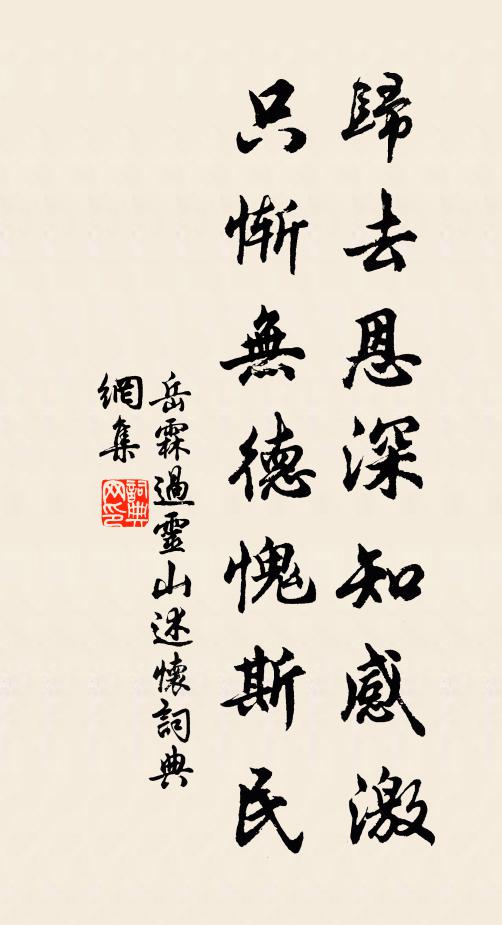 歸去恩深知感激
只慚無德愧斯民
岳霖過靈山述懷詞典
網集
詞典
网印